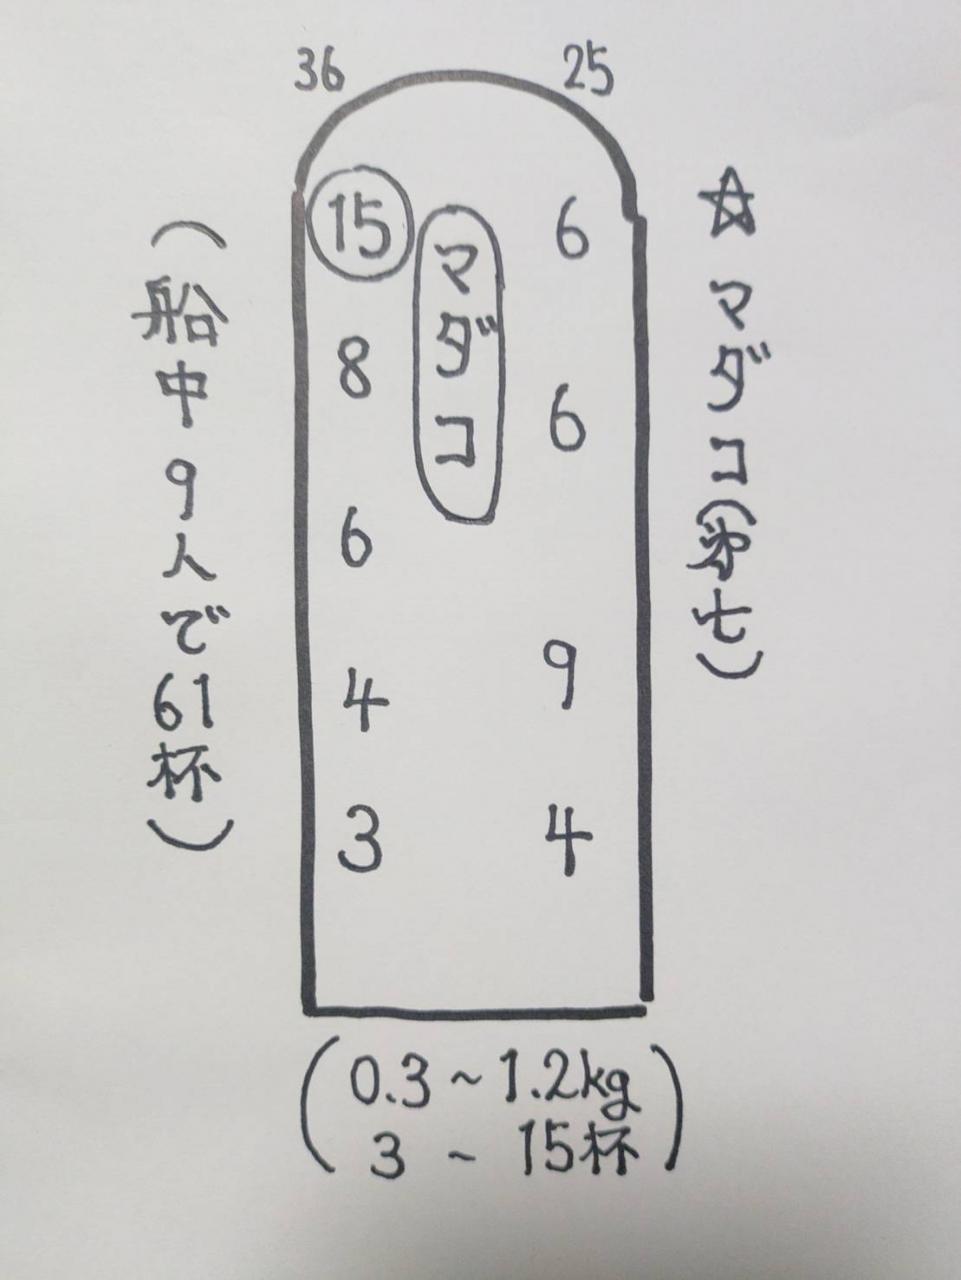 36 25
☆ マダコ(弥七)
マダコ
15 6
8 6
6 9
4 4
3
(船中9人で61杯)
(0.3~1.2kg
3~15杯)